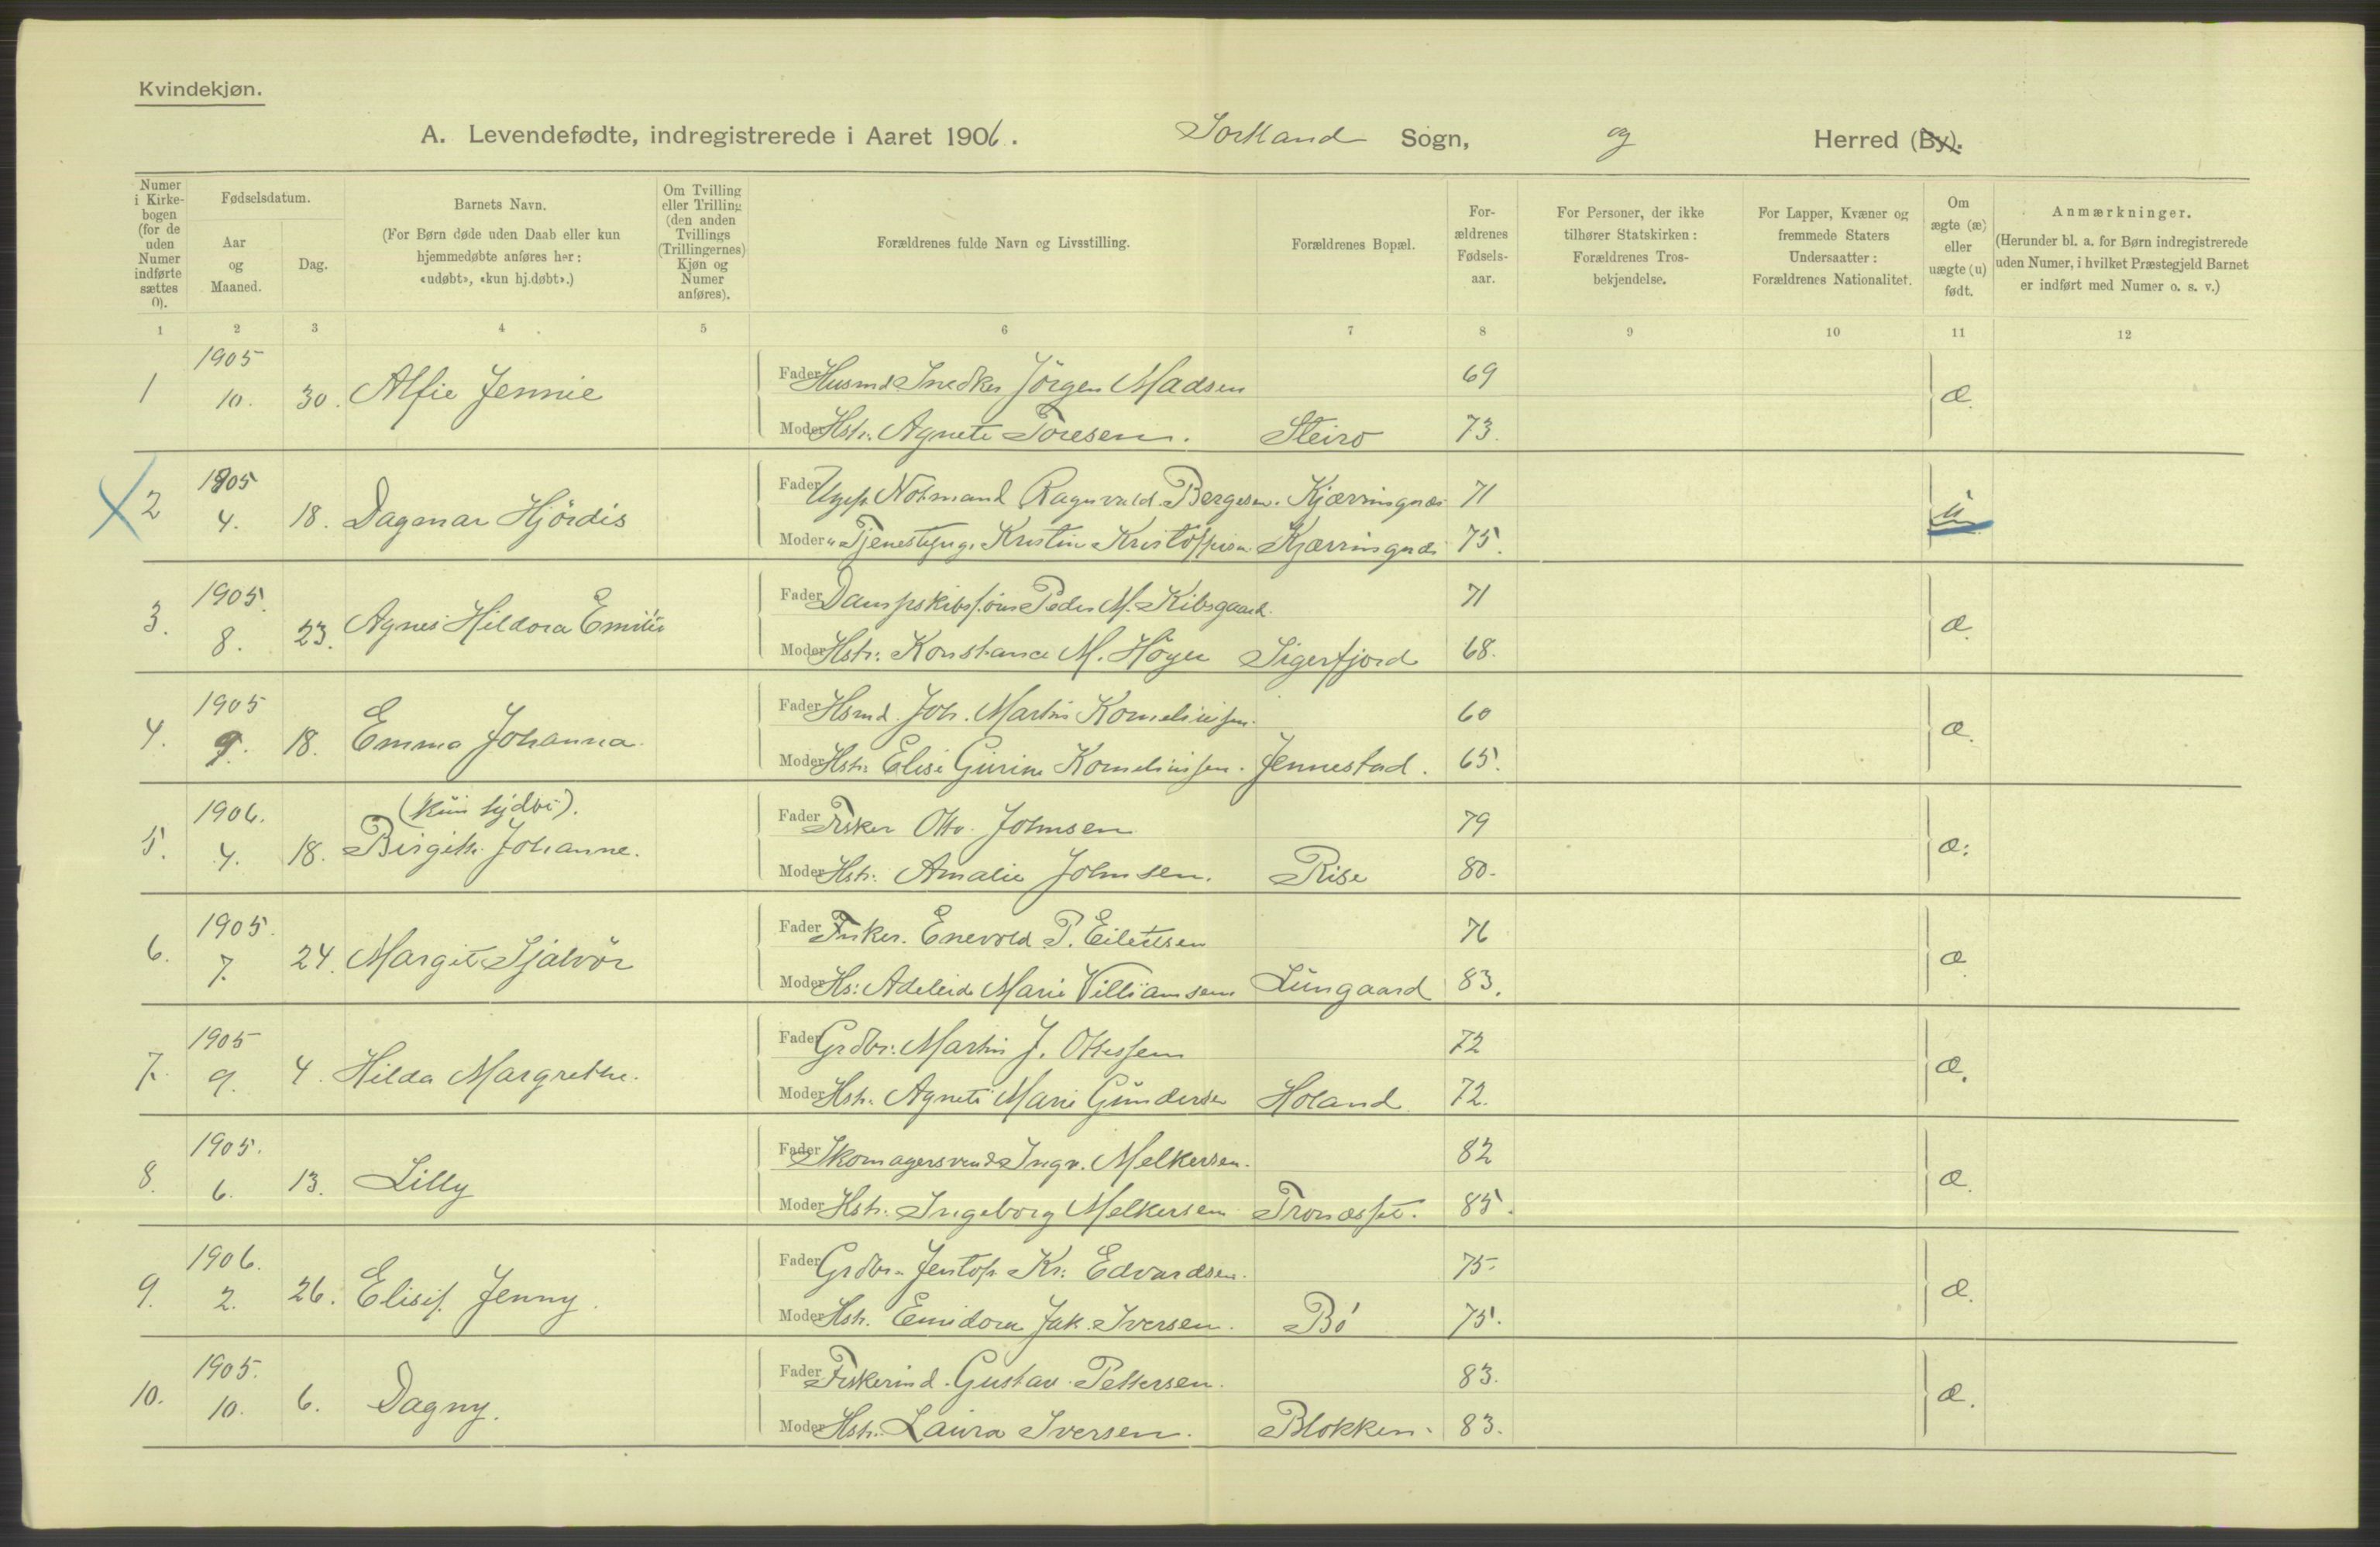 Kvindekjøn.
A. Levendefødte, indregistrerede i Aaret 1906. Sortland Sogn, og Herred (By).
Numer i Kirkebogen (for de uden Numer indførte sættes 0).
Fødselsdatum.
Aar og Maaned.
Dag.
Barnets Navn.
(For Børn døde uden Daab eller kun hjemmedøbte anføres her: «udøbt», «kun hj.døbt».)
Om Tvilling eller Trilling (den anden Tvillings (Trillingernes) Kjøn og Numer anføres).
Forældrenes fulde Navn og Livsstilling.
Forældrenes Bopæl.
For-ældrenes Fødsels-aar.
For Personer, der ikke tilhører Statskirken: Forældrenes Tros-bekjendelse.
For Lapper, Kvæner og fremmede Staters Undersaatter: Forældrenes Nationalitet.
Om ægte (æ) eller uægte (u) født.
Anmærkninger.
(Herunder bl. a. for Børn indregistrerede uden Numer, i hvilket Præstegjeld Barnet er indført med Numer o. s. v.)
1 2 3 4 5 6 7 8 9 10 11 12
1 1905 10. 30. Alfie Jennie
Fader Husmd Snedker Jörgen Madsen 69
Moder Hstr. Agnete Toresen. Steiro 73. æ.
2 1905 4. 18. Dagmar Hjördis
Fader Ugift Notmand Ragnvald Bergesen. Kjærringnæs 71
Moder " Tjenestepige Kristin Kristoffersen Kjærringnæs 75. u
3. 1905. 8. 23. Agnes Hildora Emilie
Fader Dampskibs Peder M. Kibsgaard. 71
Moder Hstr: Konstance M. Höyer Sigerfjord 68. æ.
4. 1905 9. 18. Emma Johanna.
Fader Hsmd. Joh. Martin Korneliussen. 60
Moder Hstr: Elise Gurine Korneliussen. Jennestad. 65. æ.
5. 1906. 4. 18. (kun hjdbt). Birgitte Johanne.
Fader Fisker Otto Johnsen 79
Moder Hstr. Amalie Johnsen. Rise 80. æ.
6. 1905. 7. 24. Margit Sjalvör
Fader Fisker. Enevold P. Eilertsen 76
Moder Hs: Adeleide Marie Villiamsen Lungaard 83. æ
7. 1905 9. 4. Hilda Margrethe.
Fader Grdbr: Martin J. Ottessen 72
Moder Hstr. Agnete Marie Gundersen Holand 72. æ.
8. 1905. 6. 13. Lilly
Fader Skomagersvend Ingv. Melkersen. 82
Moder Hstr. Ingeborg Melkersen 85. æ.
9. 1906. 2. 26. Elisif Jenny.
Fader Grdbr. Jentoft Kr: Edvardsen. 75.
Moder Hstr. Emidora Jak. Iversen. Bö 75. æ.
10. 1905. 10. 6. Dagny.
Fader Fiskermd. Gustav Pettersen. 83.
Moder Hstr. Laura Iversen. Blokken. 83. æ.